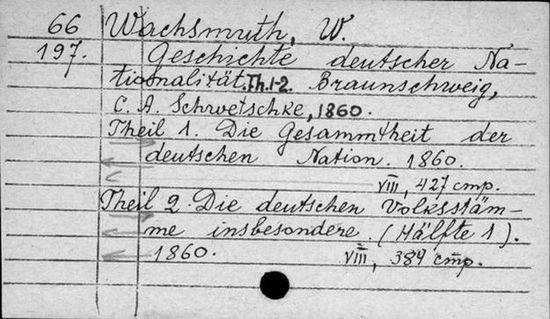 66 Wachsmuth, W.
197. Geschichte deutscher Na-
tionalität. Th. 1-2. Braunschweig,
C. A. Schwetschke, 1860.
Theil 1. Die Gesammtheit der
deutschen Nation. 1860.
VIII, 427 стр.
Theil 2. Die deutschen Volksstäm-
me insbesondere. (Hälfte 1).
1860. VIII, 384 стр.